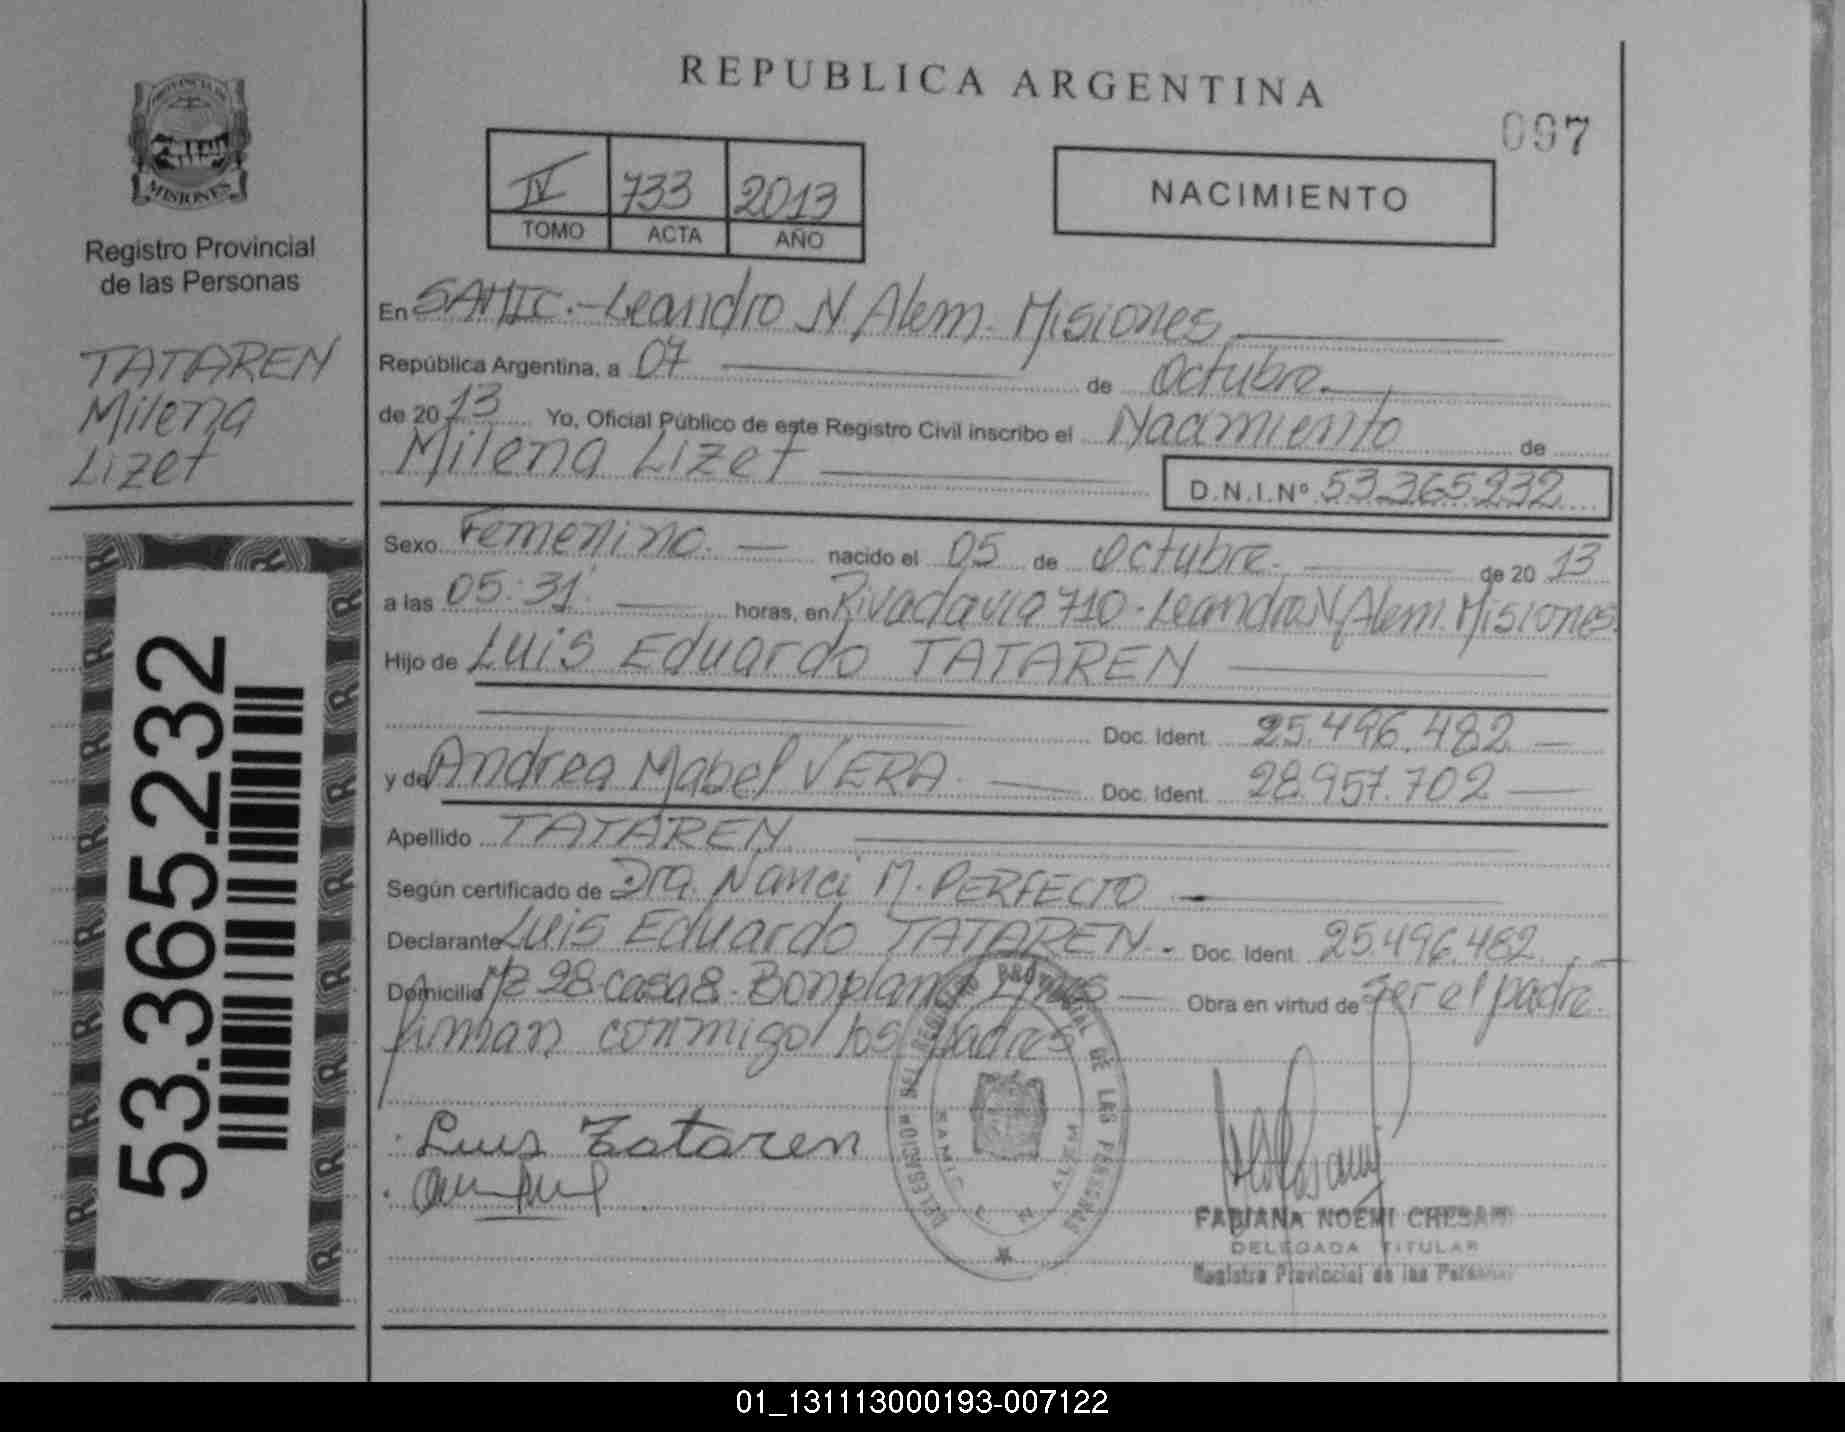 REPUBLICA ARGENTINA
097
PROVINCIA DE
MISIONES
Registro Provincial
de las Personas
TATAREN
Milena
Lizet
53.365.232
IV 733 2013
TOMO ACTA AÑO
NACIMIENTO
En SAMIC.-Leandro N Alem. Misiones
República Argentina, a 07 de Octubre.
de 2013 Yo, Oficial Público de este Registro Civil inscribo el Nacimiento de
Milena Lizet D.N.I.Nº 53.365.232
Sexo Femenino. nacido el 05 de Octubre. de 2013
a las 05:31' horas, en Rivadavia 710-Leandro N Alem. Misiones.
Hijo de Luis Eduardo TATAREN
Doc. Ident. 25.496.482
y de Andrea Mabel VERA. Doc. Ident. 28.957.702
Apellido TATAREN
Según certificado de Dra. Nanci M. PERFECTO
Declarante Luis Eduardo TATAREN.- Doc. Ident. 25.496.482.
Domicilio Mz 98-casa 8-Bonpland Obra en virtud de Ser el padre.
firman conmigo los padres
Luis Tataren
DELEGACION DEL REGISTRO PROVINCIAL DE LAS PERSONAS
SAMIC L N ALEM
FABIANA NOEMI
DELEGADA TITULAR
Registro Provincial de las Personas
01_131113000193-007122